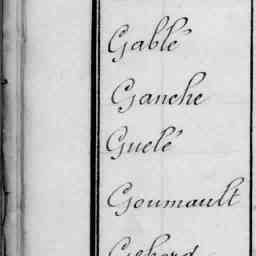 Gablé
Ganche
Guelé
Goumault